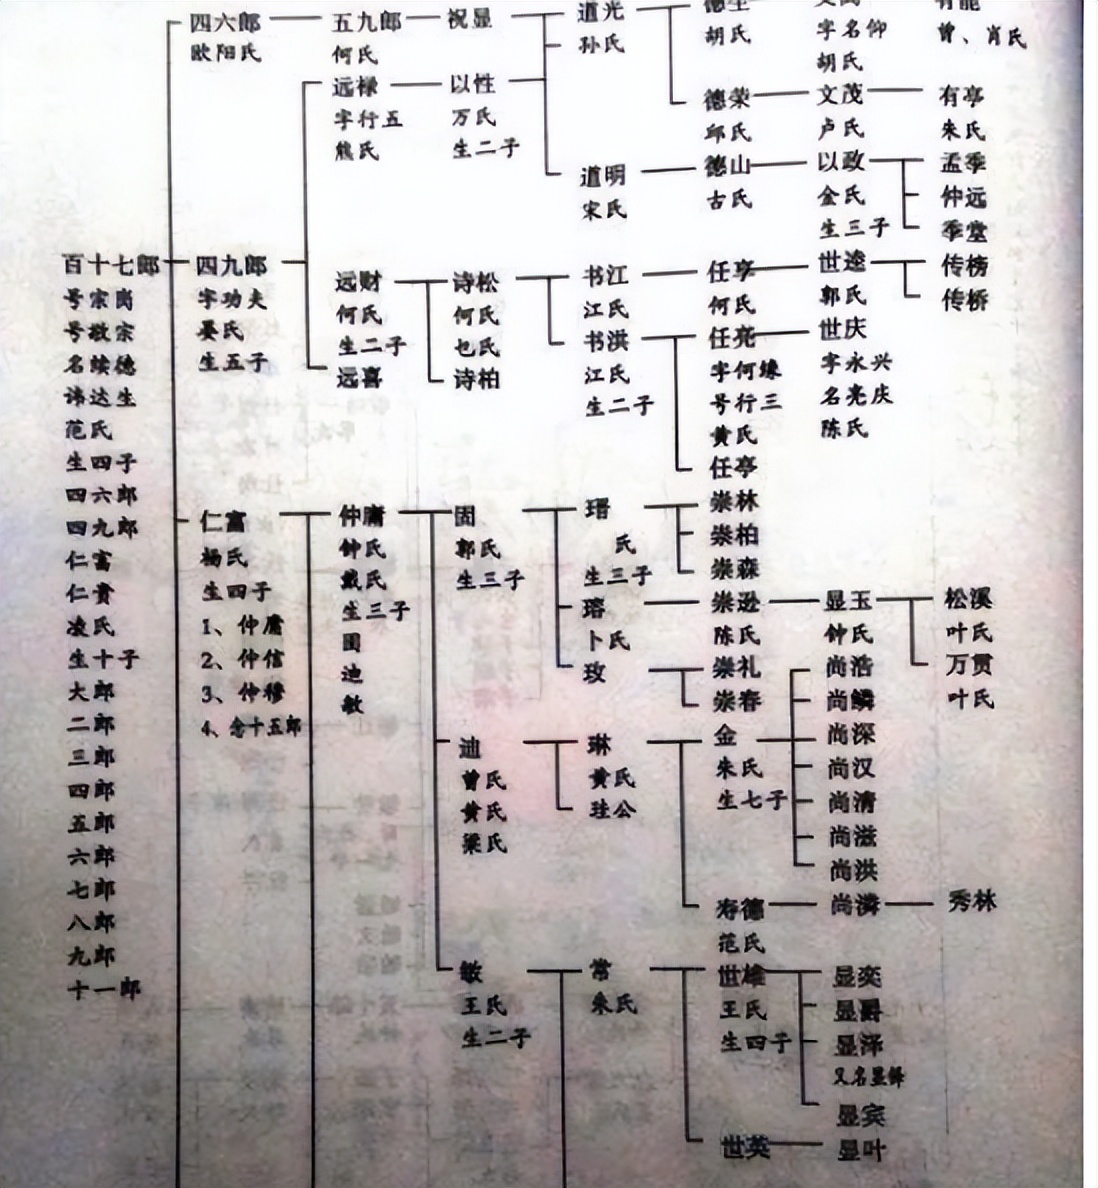 四六郎
欧阳氏
五九郎
何氏
祝显
道光
孙氏
胡氏
字名仰
胡氏
曾、肖氏
远禄
字行五
熊氏
以性
万氏
生二子
德荣
邱氏
文茂
卢氏
有亭
朱氏
道明
宋氏
德山
古氏
以政
金氏
生三子
孟季
仲远
季堂
百十七郎
号宗岗
号敬宗
名续德
讳达生
范氏
生四子
四六郎
四九郎
仁富
仁贵
凌氏
生十子
大郎
二郎
三郎
四郎
五郎
六郎
七郎
八郎
九郎
十一郎
四九郎
字功夫
晏氏
生五子
远财
何氏
生二子
远喜
诗松
何氏
乜氏
诗柏
书江
江氏
书洪
江氏
生二子
任享
何氏
任亮
字何缘
号行三
黄氏
任亭
世逵
郭氏
世庆
字永兴
名亮庆
陈氏
传榜
传桥
仁富
杨氏
生四子
1、仲庸
2、仲信
3、仲穆
4、念十五郎
仲庸
钟氏
戴氏
生三子
迪
敏
固
郭氏
生三子
瑨
氏
生三子
瑢
卜氏
玫
崇林
崇柏
崇森
崇逊
陈氏
崇礼
崇春
显玉
钟氏
松溪
叶氏
万贯
叶氏
迪
曾氏
黄氏
梁氏
琳
黄氏
珪公
金
朱氏
生七子
尚浩
尚鳞
尚深
尚汉
尚清
尚滋
尚洪
寿德
范氏
尚潾
秀林
敏
王氏
生二子
常
朱氏
世雄
王氏
生四子
显奕
显爵
显泽
又名显铎
显宾
世英
显叶